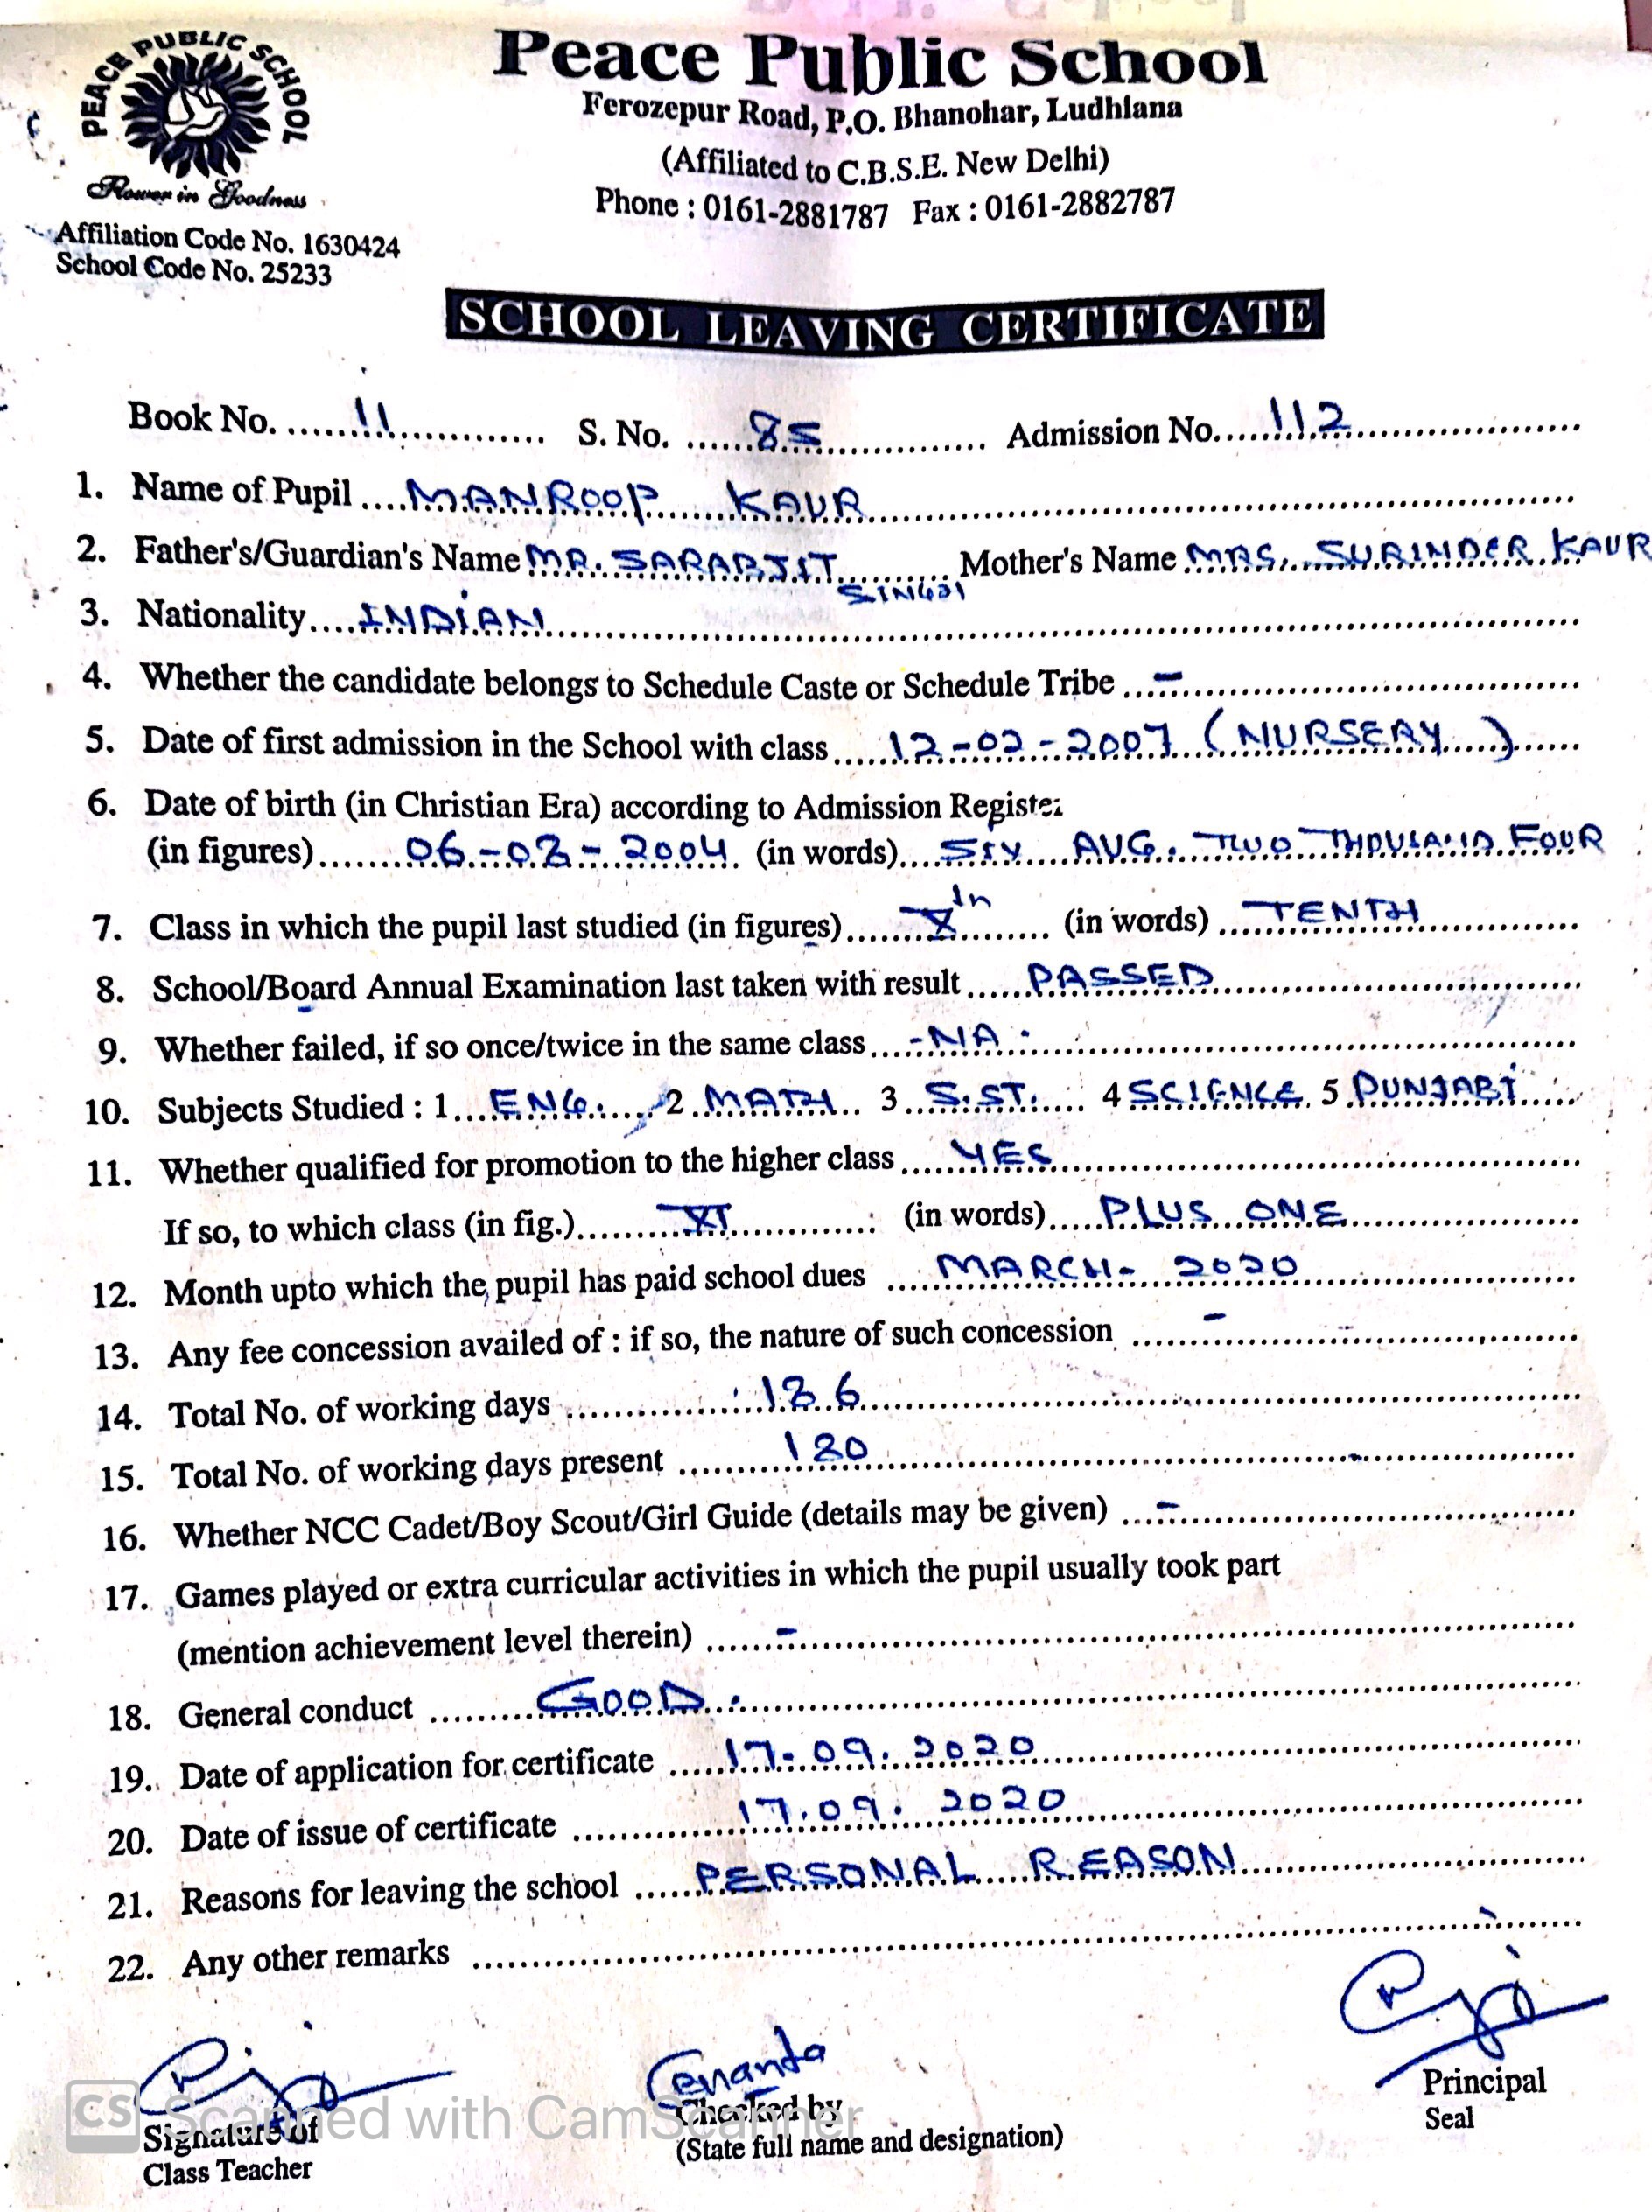 PEACE PUBLIC SCHOOL
Flower in Goodness
Affiliation Code No. 1630424
School Code No. 25233
Peace Public School
Ferozepur Road, P.O. Bhanohar, Ludhiana
(Affiliated to C.B.S.E. New Delhi)
Phone : 0161-2881787 Fax : 0161-2882787
SCHOOL LEAVING CERTIFICATE
Book No. 11 S. No. 85 Admission No. 112
1. Name of Pupil MANROOP KAUR
2. Father's/Guardian's Name MR. SARABJIT SINGH Mother's Name MRS. SURINDER KAUR
3. Nationality INDIAN
4. Whether the candidate belongs to Schedule Caste or Schedule Tribe -
5. Date of first admission in the School with class 12-02-2007 (NURSERY)
6. Date of birth (in Christian Era) according to Admission Register
(in figures) 06-08-2004. (in words) SIX AUG. TWO THOUSAND FOUR
7. Class in which the pupil last studied (in figures) Xth (in words) TENTH
8. School/Board Annual Examination last taken with result PASSED
9. Whether failed, if so once/twice in the same class -NA-
10. Subjects Studied : 1 ENG. 2 MATH 3 S.ST. 4 SCIENCE 5 PUNJABI
11. Whether qualified for promotion to the higher class YES
If so, to which class (in fig.) XI (in words) PLUS ONE
12. Month upto which the pupil has paid school dues MARCH- 2020
13. Any fee concession availed of : if so, the nature of such concession -
14. Total No. of working days 186
15. Total No. of working days present 180
16. Whether NCC Cadet/Boy Scout/Girl Guide (details may be given) -
17. Games played or extra curricular activities in which the pupil usually took part
(mention achievement level therein) -
18. General conduct GOOD.
19. Date of application for certificate 17.09.2020
20. Date of issue of certificate 17.09.2020
21. Reasons for leaving the school PERSONAL REASON
22. Any other remarks
Signature of
Class Teacher
Checked by
(State full name and designation)
Principal
Seal
CS Scanned with CamScanner